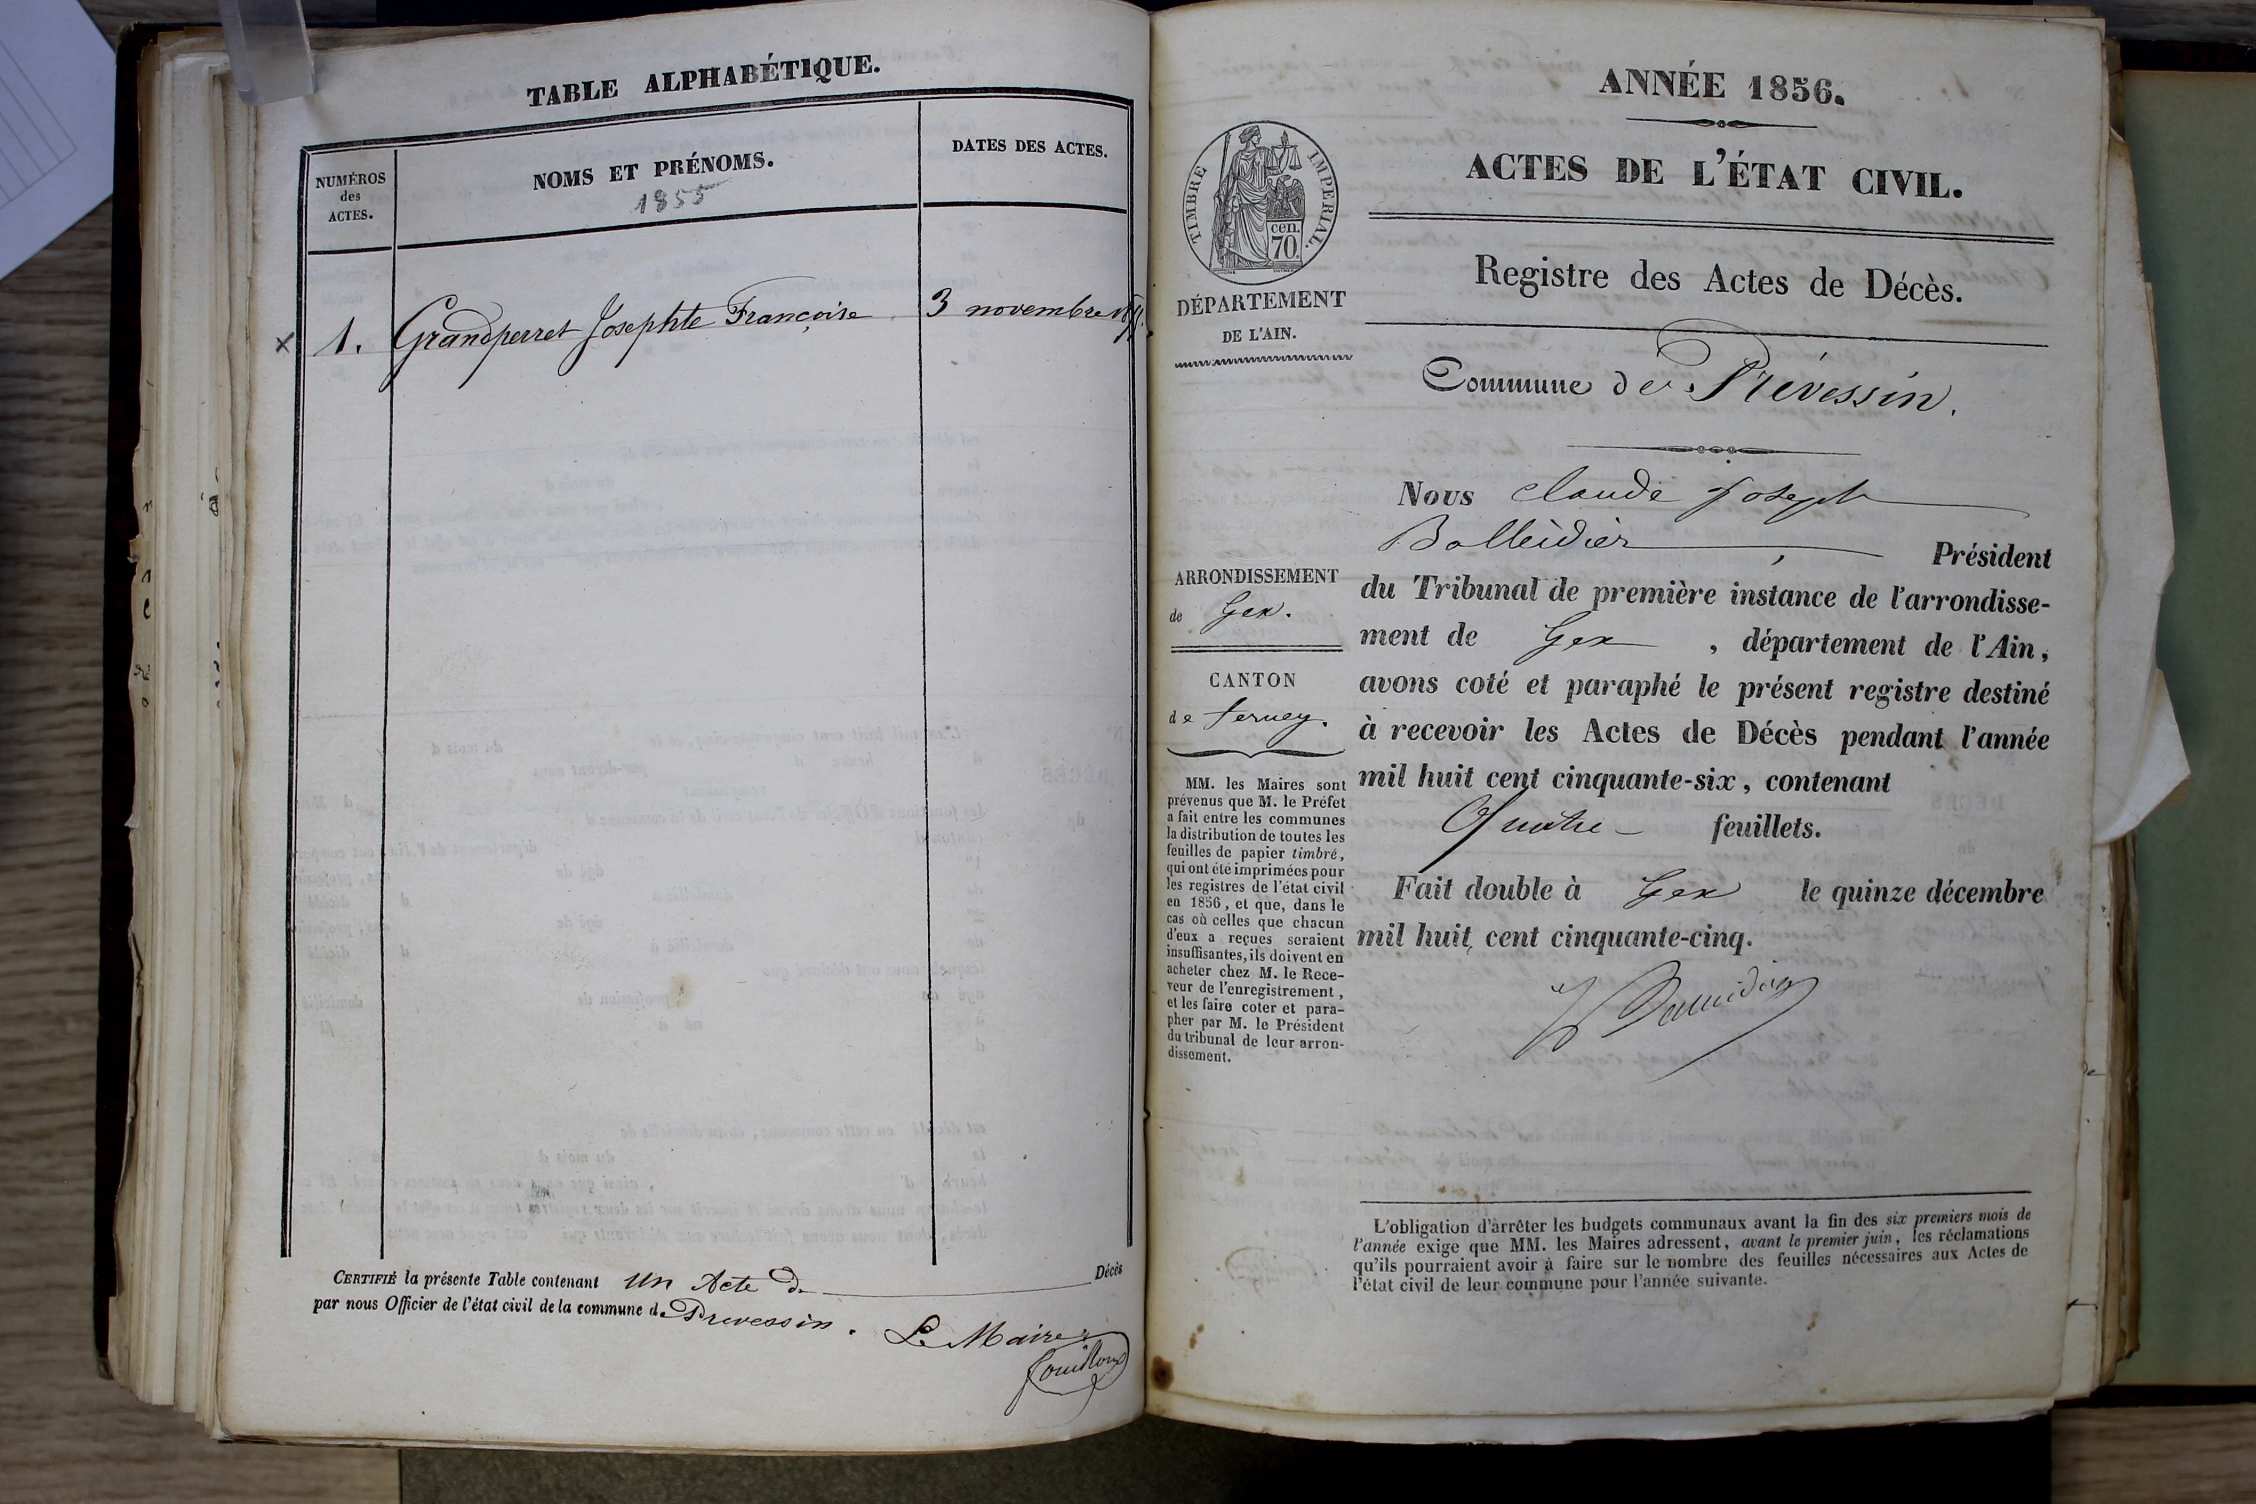 TABLE ALPHABÉTIQUE.
NUMÉROS
des
ACTES.
NOMS ET PRÉNOMS.
1855
DATES DES ACTES.
x 1. Grandperret Josephte Françoise 3 novembre
CERTIFIÉ la présente Table contenant un Acte de Décès
par nous Officier de l'état civil de la commune de Prevessin.
Le Maire
ANNÉE 1856.
ACTES DE L'ÉTAT CIVIL.
TIMBRE IMPERIAL.
cen.
70.
DÉPARTEMENT
DE L'AIN.
Registre des Actes de Décès.
Commune de Prévessin.
ARRONDISSEMENT
de Gex.
CANTON
de ferney.
MM. les Maires sont
prévenus que M. le Préfet
a fait entre les communes
la distribution de toutes les
feuilles de papier timbré,
qui ont été imprimées pour
les registres de l'état civil
en 1856, et que, dans le
cas où celles que chacun
d'eux a reçues seraient
insuffisantes, ils doivent en
acheter chez M. le Rece-
veur de l'enregistrement,
et les faire coter et para-
pher par M. le Président
du tribunal de leur arron-
dissement.
Nous claude joseph
Balleidier, Président
du Tribunal de première instance de l'arrondisse-
ment de Gex, département de l'Ain,
avons coté et paraphé le présent registre destiné
à recevoir les Actes de Décès pendant l'année
mil huit cent cinquante-six, contenant
Quatre feuillets.
Fait double à Gex le quinze décembre
mil huit cent cinquante-cinq.
L'obligation d'arrêter les budgets communaux avant la fin des six premiers mois de
l'année exige que MM. les Maires adressent, avant le premier juin, les réclamations
qu'ils pourraient avoir à faire sur le nombre des feuilles nécessaires aux Actes de
l'état civil de leur commune pour l'année suivante.